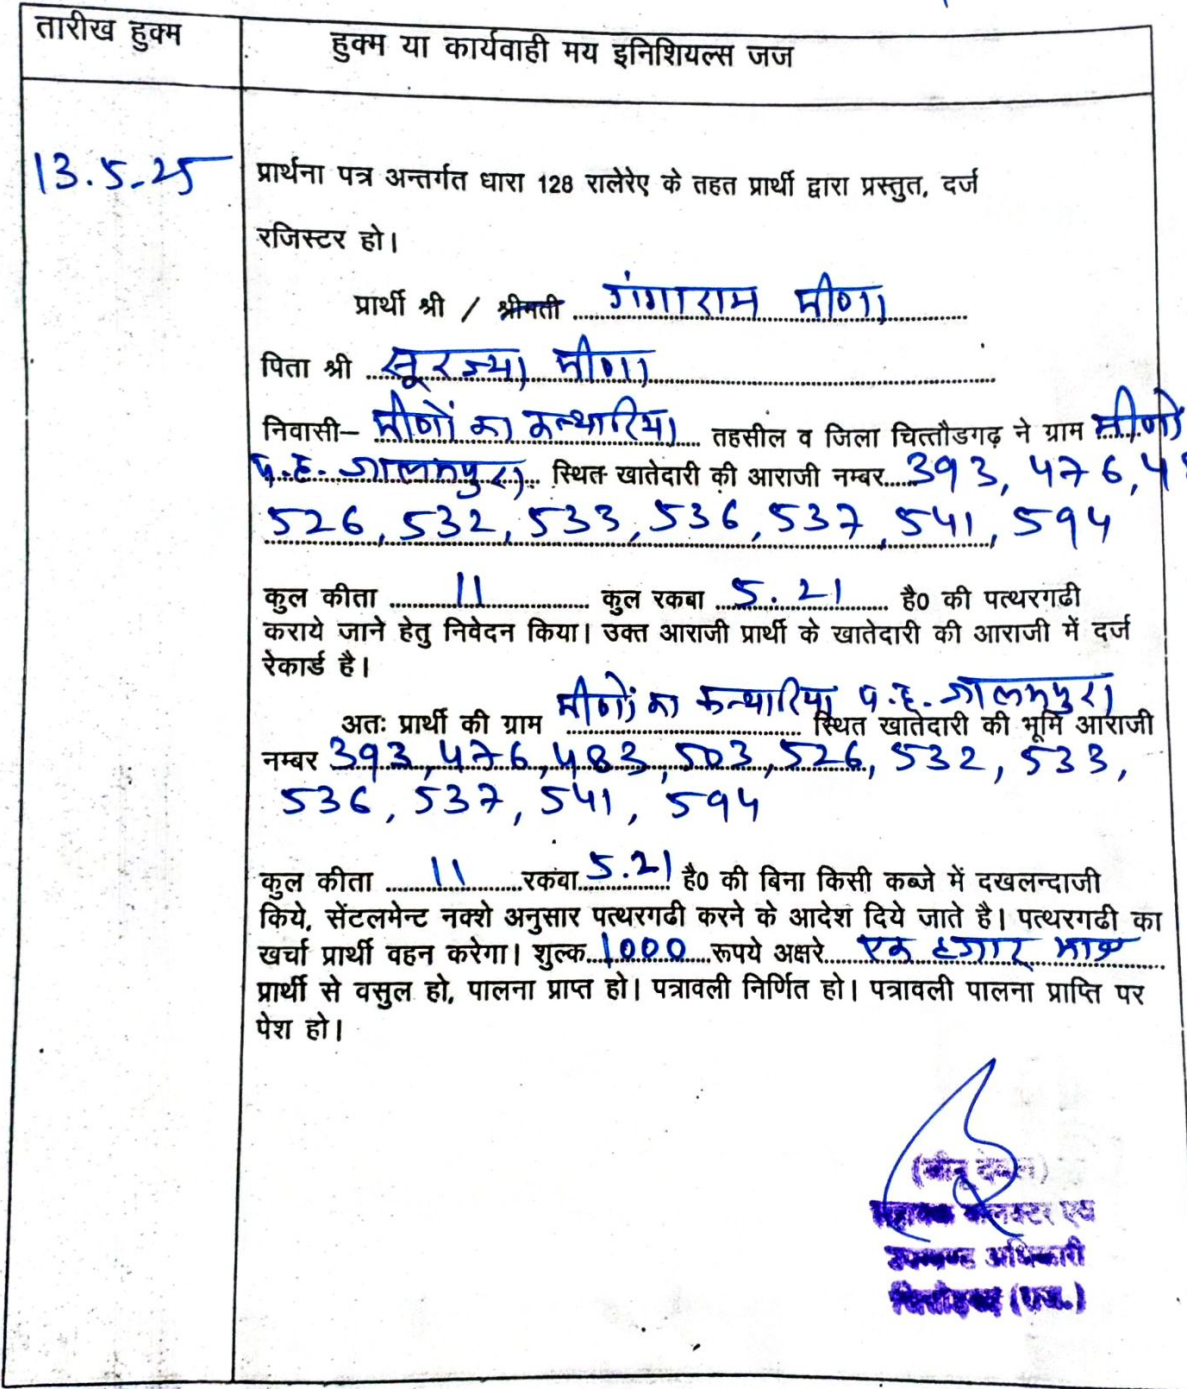 तारीख हुक्म
हुक्म या कार्यवाही मय इनिशियल्स जज
13.5.25
प्रार्थना पत्र अन्तर्गत धारा 128 रालेरेए के तहत प्रार्थी द्वारा प्रस्तुत, दर्ज
रजिस्टर हो।
प्रार्थी श्री / श्रीमती गंगाराम मीणा
पिता श्री सूरज्या मीणा
निवासी– मीणों का कन्थारिया तहसील व जिला चित्तौडगढ़ ने ग्राम मीणों
प.ह. जालमपुरा स्थित खातेदारी की आराजी नम्बर 393, 476, 4
526, 532, 533, 536, 537, 541, 594
कुल कीता 11 कुल रकबा 5.21 है0 की पत्थरगढी
कराये जाने हेतु निवेदन किया। उक्त आराजी प्रार्थी के खातेदारी की आराजी में दर्ज
रेकार्ड है।
मीणों का कन्थारिया प.ह. जालमपुरा
अतः प्रार्थी की ग्राम स्थित खातेदारी की भूमि आराजी
नम्बर 393, 476, 483, 503, 526, 532, 533,
536, 537, 541, 594
कुल कीता 11 रकबा 5.21 है0 की बिना किसी कब्जे में दखलन्दाजी
किये, सेंटलमेन्ट नक्शे अनुसार पत्थरगढी करने के आदेश दिये जाते है। पत्थरगढी का
खर्चा प्रार्थी वहन करेगा। शुल्क 1000 रूपये अक्षरे एक हजार मात्र
प्रार्थी से वसुल हो, पालना प्राप्त हो। पत्रावली निर्णित हो। पत्रावली पालना प्राप्ति पर
पेश हो।
सहायक कलक्टर एवं
उपखण्ड अधिकारी
चित्तौड़गढ़ (राज.)